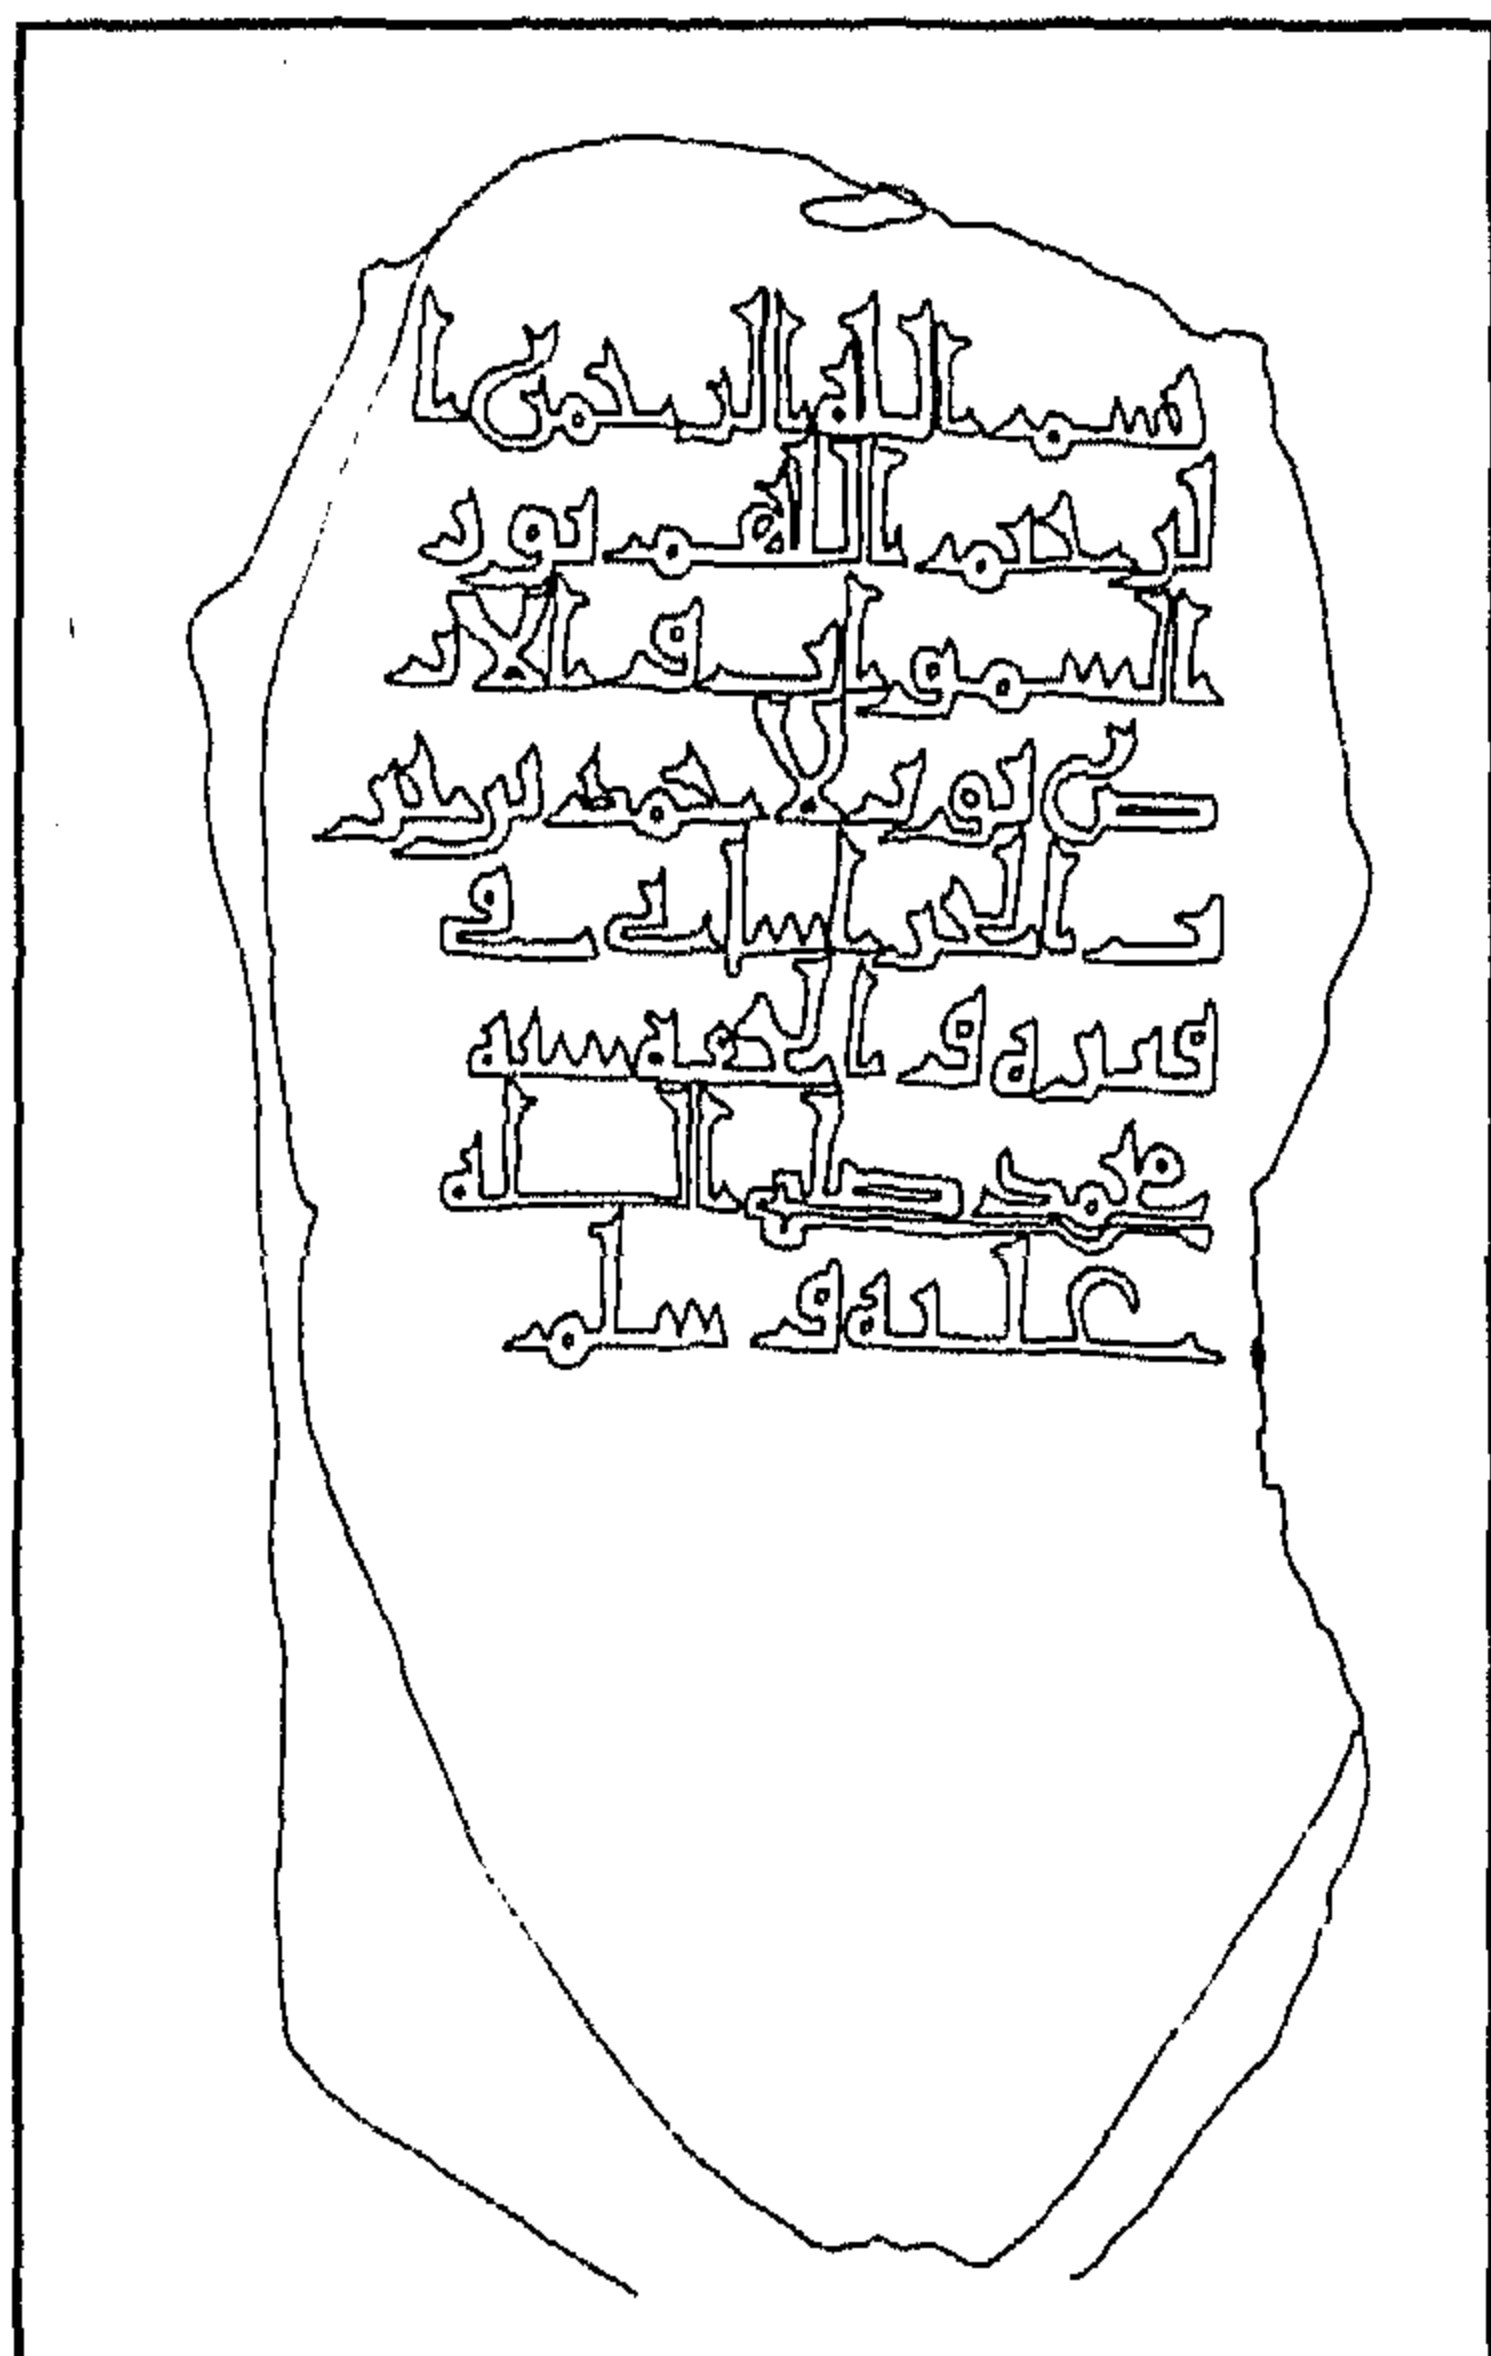 بسم الله الرحمن ا
لرحيم اللهم نور
السموات والار
ض نور لاحمد بن يز
يد الخراساني في
قبره و الحقه بنبيه
محمد صلى الله
عليه و سلم